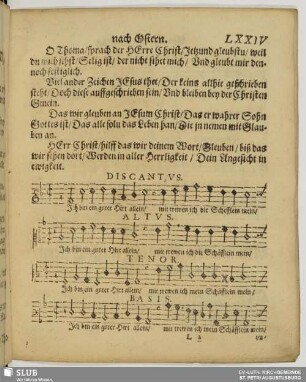 nach Ostern. LXXIV
O Thoma/sprach der HErre Christ/Jetzund gleubstu/weil
du mich sihst/Selig ist/der nicht sihet mich/Vnd gleubt mir den-
noch festiglich.
Viel ander Zeichen JEsus thet/Der keins allhie geschrieben
steht/Doch dieß auffgeschrieben sein/Vnd bleiben bey der Christen
Gmein.
Das wir gleuben an JEsum Christ/Das er wahrer Sohn
Gottes ist/Das alle solln das Leben han/Die jn nemen mit Glau-
ben an.
HErr Christ/hilff das wir deinem Wort/Gleuben/biß das
wir sehen dort/Werden in aller Herrligkeit/Dein Angesicht in
ewigkeit.
DISCANTVS.
Ich bin ein guter Hirt allein/ mit trewen ich die Schäfflein mein/
ALTVS.
Ich bin ein guter Hirt allein/ mit trewen ich die Schäfflein mein/
TENOR
Ich bin ein guter Hirt allein/ mit trewen ich mein Schäfflein mein/
BASIS.
Ich bin ein guter Hirt allein/ mit trewen ich mein Schäfflein mein/
L 2
SLUB
Wir führen Wissen.
EV.-LUTH. KIRCHGEMEINDE
ST. PETRI AUGUSTUSBURG